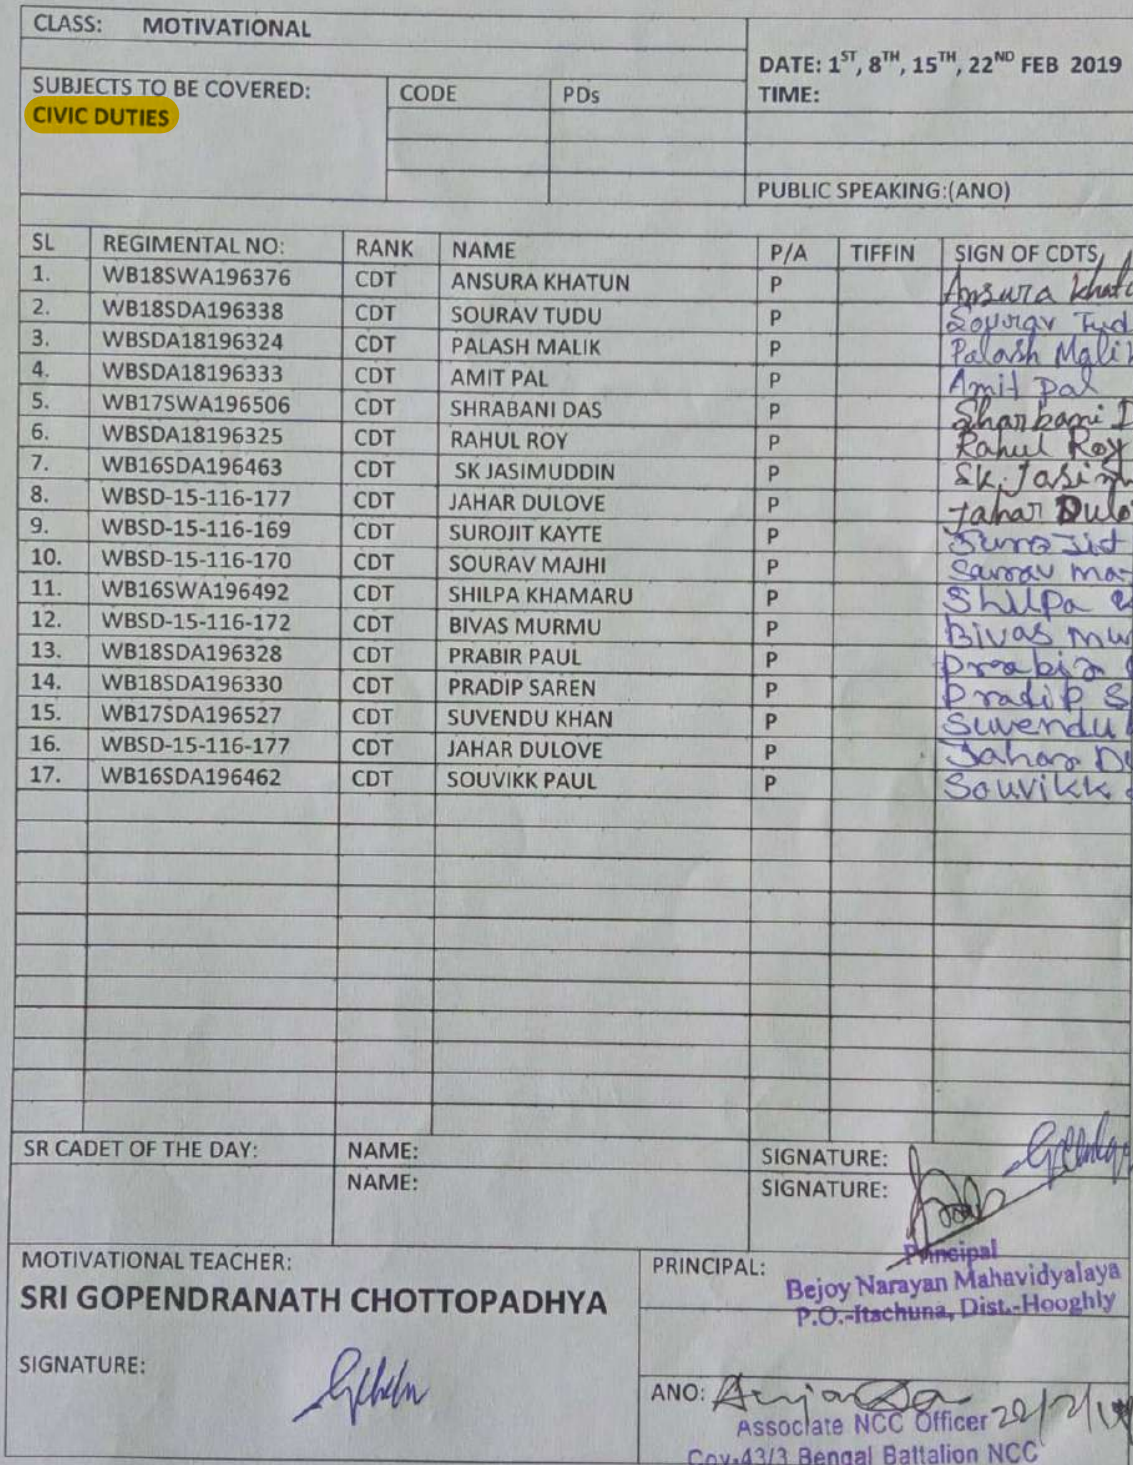 CLASS: MOTIVATIONAL
DATE: 1ST, 8TH, 15TH, 22ND FEB 2019
TIME:
SUBJECTS TO BE COVERED: CODE PDs
CIVIC DUTIES
PUBLIC SPEAKING:(ANO)
SL REGIMENTAL NO: RANK NAME P/A TIFFIN SIGN OF CDTS
1. WB18SWA196376 CDT ANSURA KHATUN P Ansura
2. WB18SDA196338 CDT SOURAV TUDU P Sourav
3. WBSDA18196324 CDT PALASH MALIK P Palash Malik
4. WBSDA18196333 CDT AMIT PAL P Amit pal
5. WB17SWA196506 CDT SHRABANI DAS P
6. WBSDA18196325 CDT RAHUL ROY P Rahul Roy
7. WB16SDA196463 CDT SK JASIMUDDIN P SK.
8. WBSD-15-116-177 CDT JAHAR DULOVE P Jahar
9. WBSD-15-116-169 CDT SUROJIT KAYTE P
10. WBSD-15-116-170 CDT SOURAV MAJHI P
11. WB16SWA196492 CDT SHILPA KHAMARU P Shilpa
12. WBSD-15-116-172 CDT BIVAS MURMU P Bivas
13. WB18SDA196328 CDT PRABIR PAUL P Prabir
14. WB18SDA196330 CDT PRADIP SAREN P Pradip
15. WB17SDA196527 CDT SUVENDU KHAN P Suvendu
16. WBSD-15-116-177 CDT JAHAR DULOVE P Jahar
17. WB16SDA196462 CDT SOUVIKK PAUL P Souvikk
SR CADET OF THE DAY: NAME: SIGNATURE:
NAME: SIGNATURE:
MOTIVATIONAL TEACHER:
SRI GOPENDRANATH CHOTTOPADHYA
SIGNATURE:
PRINCIPAL:
Principal
Bejoy Narayan Mahavidyalaya
P.O.-Itachuna, Dist.-Hooghly
ANO:
Associate NCC Officer
Coy-43/3 Bengal Battalion NCC